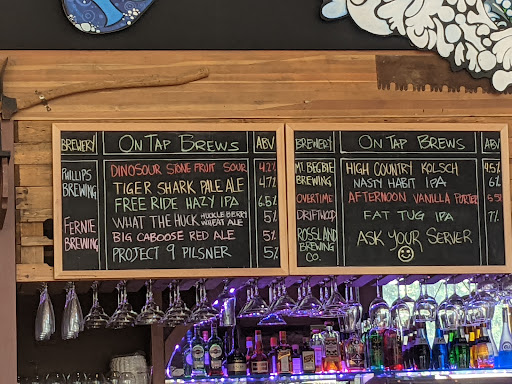 BREWERY ON TAP BREWS ABV
PHILLIPS BREWING
DINOSOUR STONE FRUIT SOUR 4.2%
TIGER SHARK PALE ALE 4.7%
FREE RIDE HAZY IPA 6.5%
FERNIE BREWING
WHAT THE HUCK HUCKLEBERRY WHEAT ALE 5%
BIG CABOOSE RED ALE 5%
PROJECT 9 PILSNER 5%
BREWERY ON TAP BREWS ABV
MT. BEGBIE BREWING
HIGH COUNTRY KOLSCH 4.5%
NASTY HABIT IPA 6%
OVERTIME AFTERNOON VANILLA PORTER 5.5%
DRIFTWOOD FAT TUG IPA 7%
ROSSLAND BREWING CO.
ASK YOUR SERVER